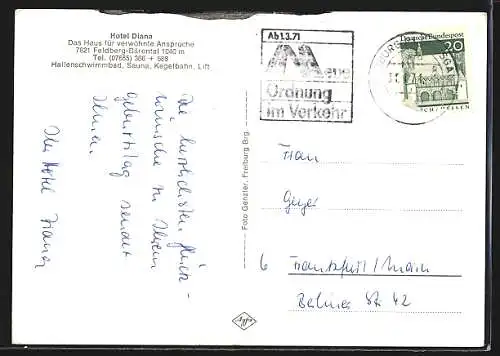 Hotel Diana
Das Haus für verwöhnte Ansprüche
7821 Feldberg-Bärental 1040 m
Tel. (07655) 386 + 588
Hallenschwimmbad, Sauna, Kegelbahn, Lift
Die herzlichsten Glück-
wünsche zu Ihrem
Geburtstag sendet
Ihnen
Ihr Hotel Diana
Foto Genzler, Freiburg Brg.
Ab 1.3.71
Neue
Ordnung
im Verkehr
Deutsche Bundespost
20
Frau
Geyer
6 Frankfurt/Main
Berliner Str. 42